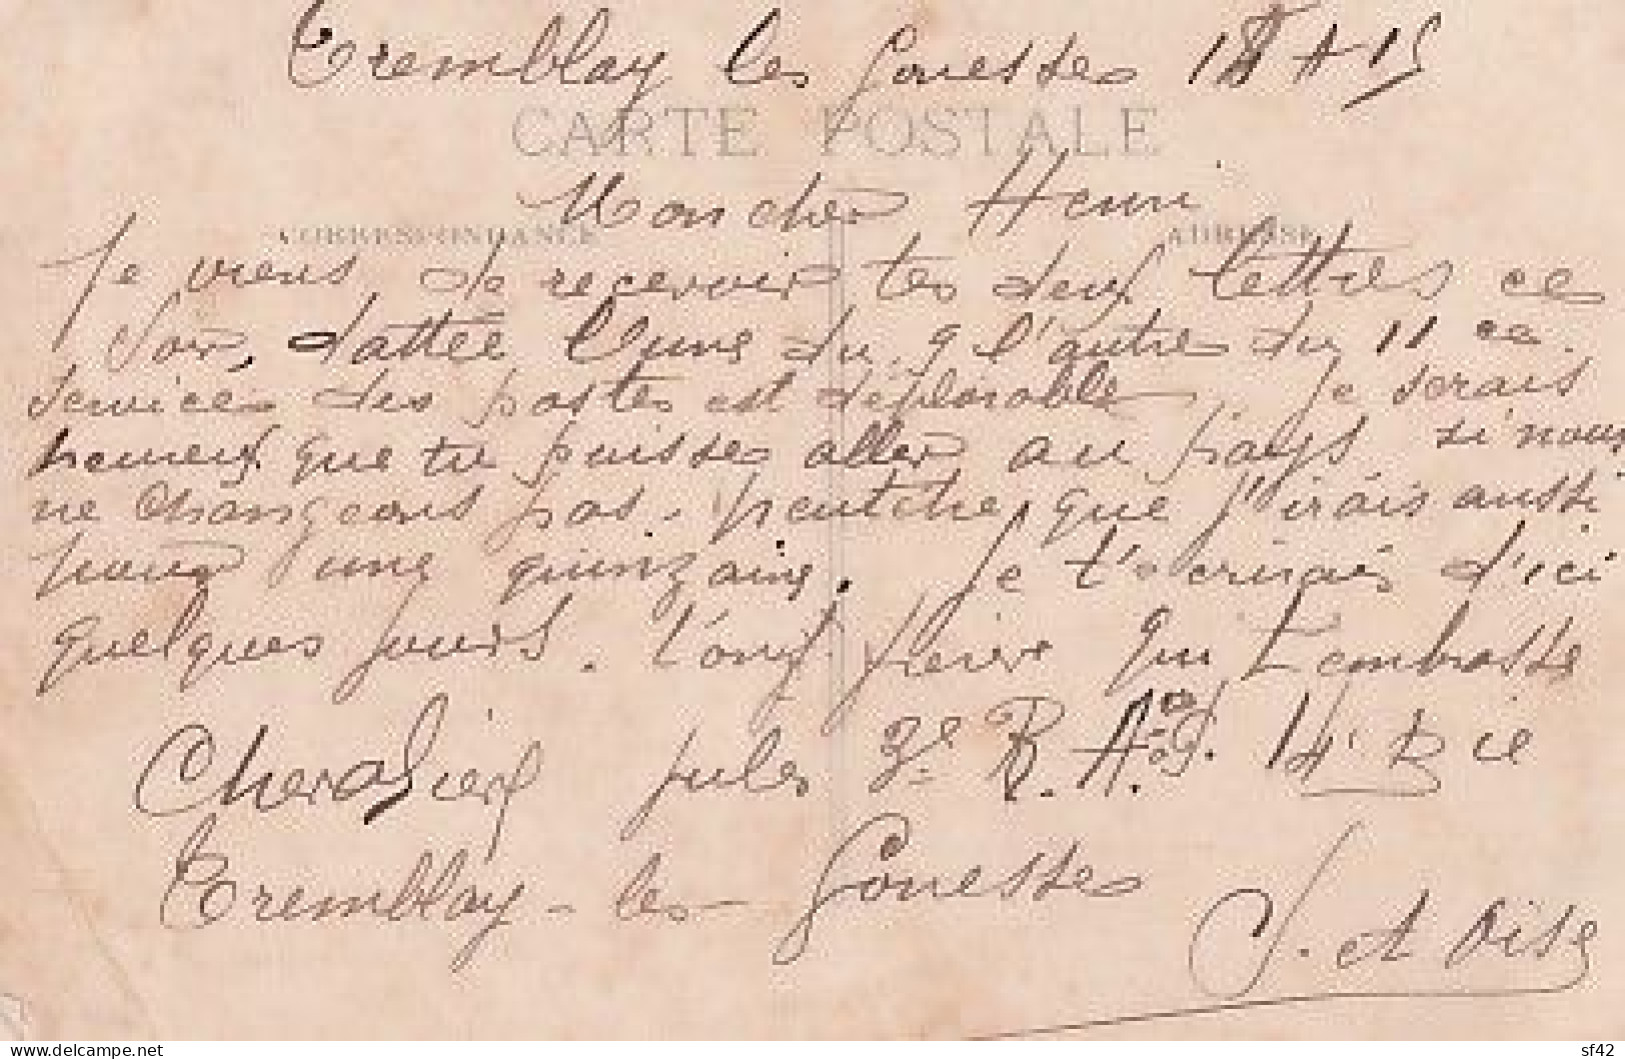 Tremblay les Gonesses 18
CARTE POSTALE
Mon cher Henri
CORRESPONDANCE ADRESSE
Je viens de recevoir tes deux lettres ce
soir, dattée l'une du 9 l'autre du 11 ce
services des postes est déplorable. Je serais
heureux que tu puisses aller au pays, si nous
ne changeons pas, peutetre que j'irais aussi
pour une quinzaine. Je t'ecrirais d'ici
quelques jours. Ton frère qui t'embrasse
Chevalier jules 3e R. A. 14 Bie
Tremblay-les-Gonesses
S. et Oise
delcampe.net
sf42